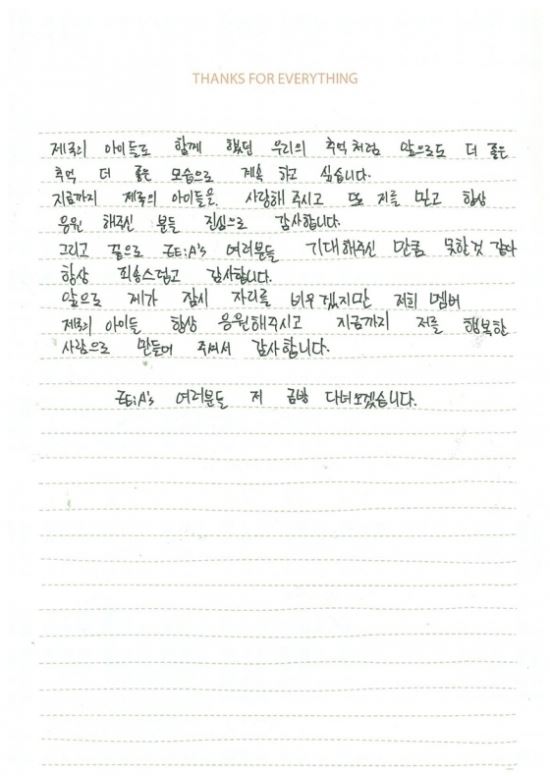 THANKS FOR EVERYTHING
제국의 아이들로 함께 했던 우리의 추억처럼 앞으로도 더 좋은
추억 더 좋은 모습으로 계획 하고 싶습니다.
지금까지 제국의 아이들을 사랑해 주시고 또 저를 믿고 항상
응원 해주신 분들 진심으로 감사합니다.
그리고 끝으로 ZE:A's 여러분들 기대해주신 만큼 못한것 같아
항상 죄송스럽고 감사합니다.
앞으로 제가 잠시 자리를 비우겠지만 저희 멤버
제국의 아이들 항상 응원해주시고 지금까지 저를 행복한
사람으로 만들어 주셔서 감사합니다.
ZE:A's 여러분들 저 금방 다녀오겠습니다.